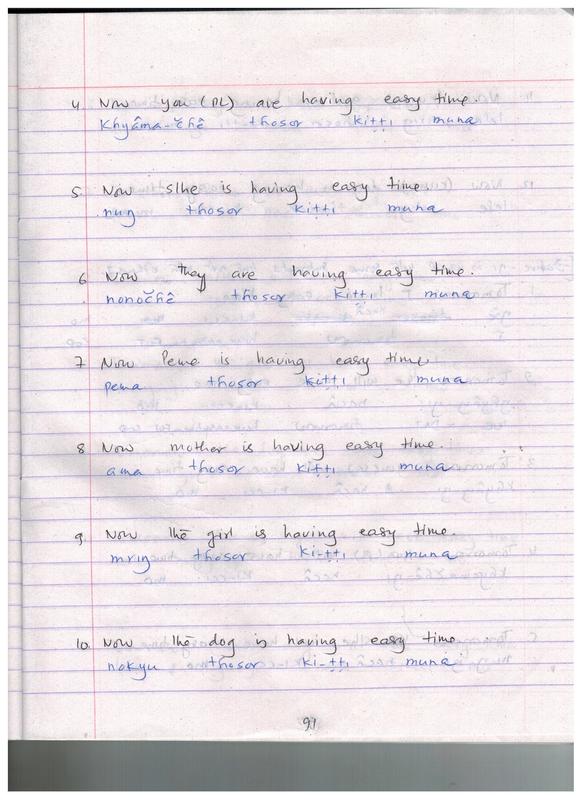 4. Now you (PL) are having easy time.
Khyâma-čhê thosor kiṭṭı muna
5. Now s/he is having easy time.
nuŋ thosor kiṭṭı muna
6 Now they are having easy time.
nonočhê thosor kiṭṭı muna
7 Now Pema is having easy time.
pema thosor kiṭṭı muna
8 Now mother is having easy time.
ama thosor kiṭṭı muna
9. Now the girl is having easy time.
mrıŋ thosor kı-ṭṭı muna
10. Now the dog is having easy time.
nokyu thosor ki-ṭṭı muna
91